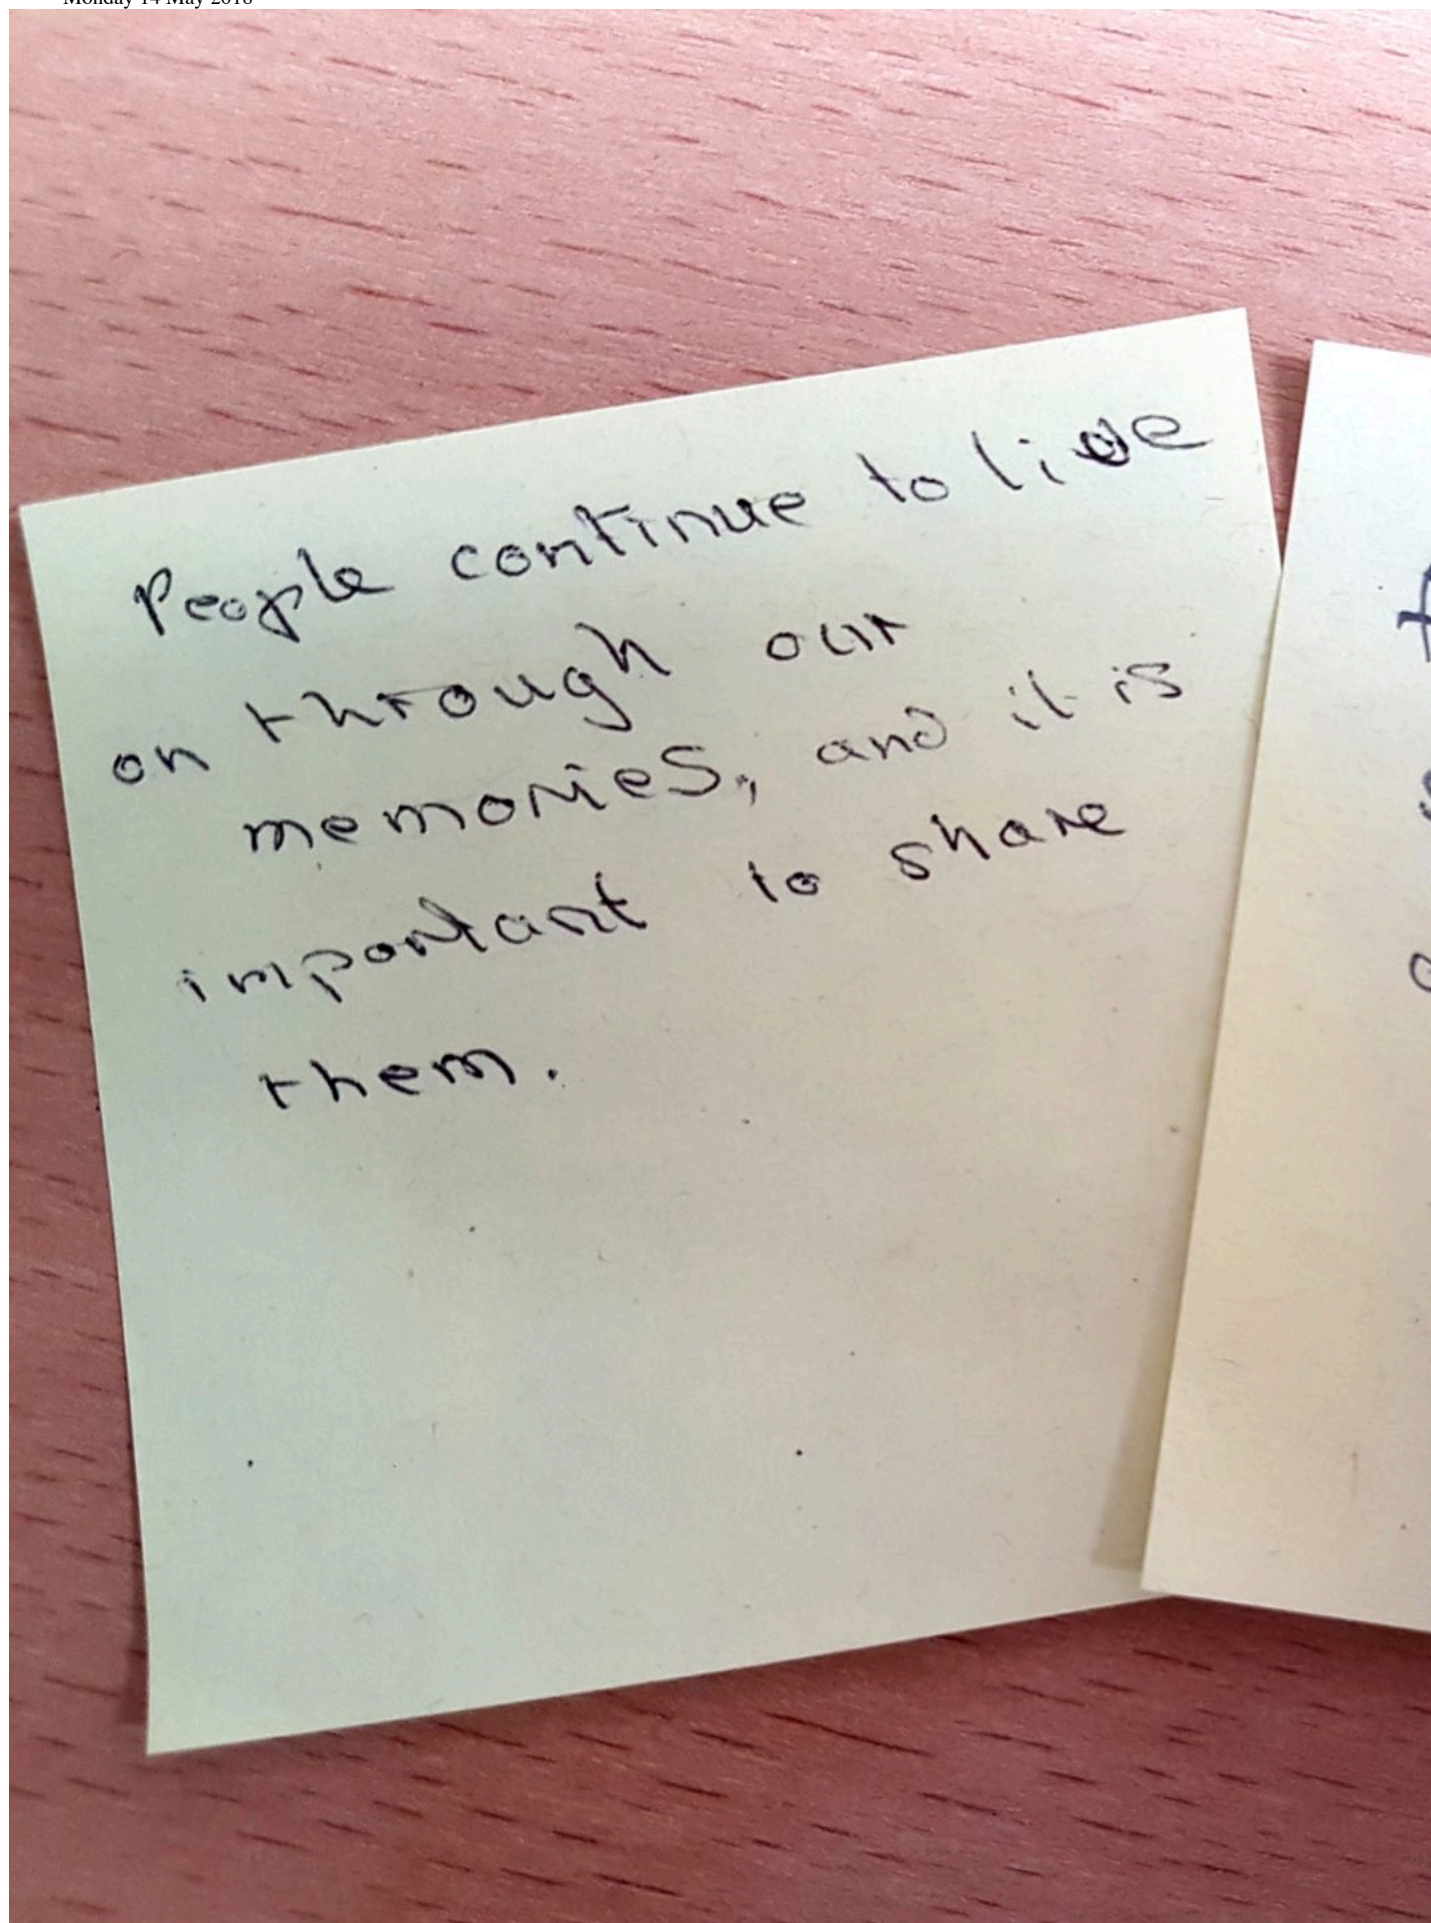 Monday 14 May 2018
People continue to live
on through our
memories, and it is
important to share
them.